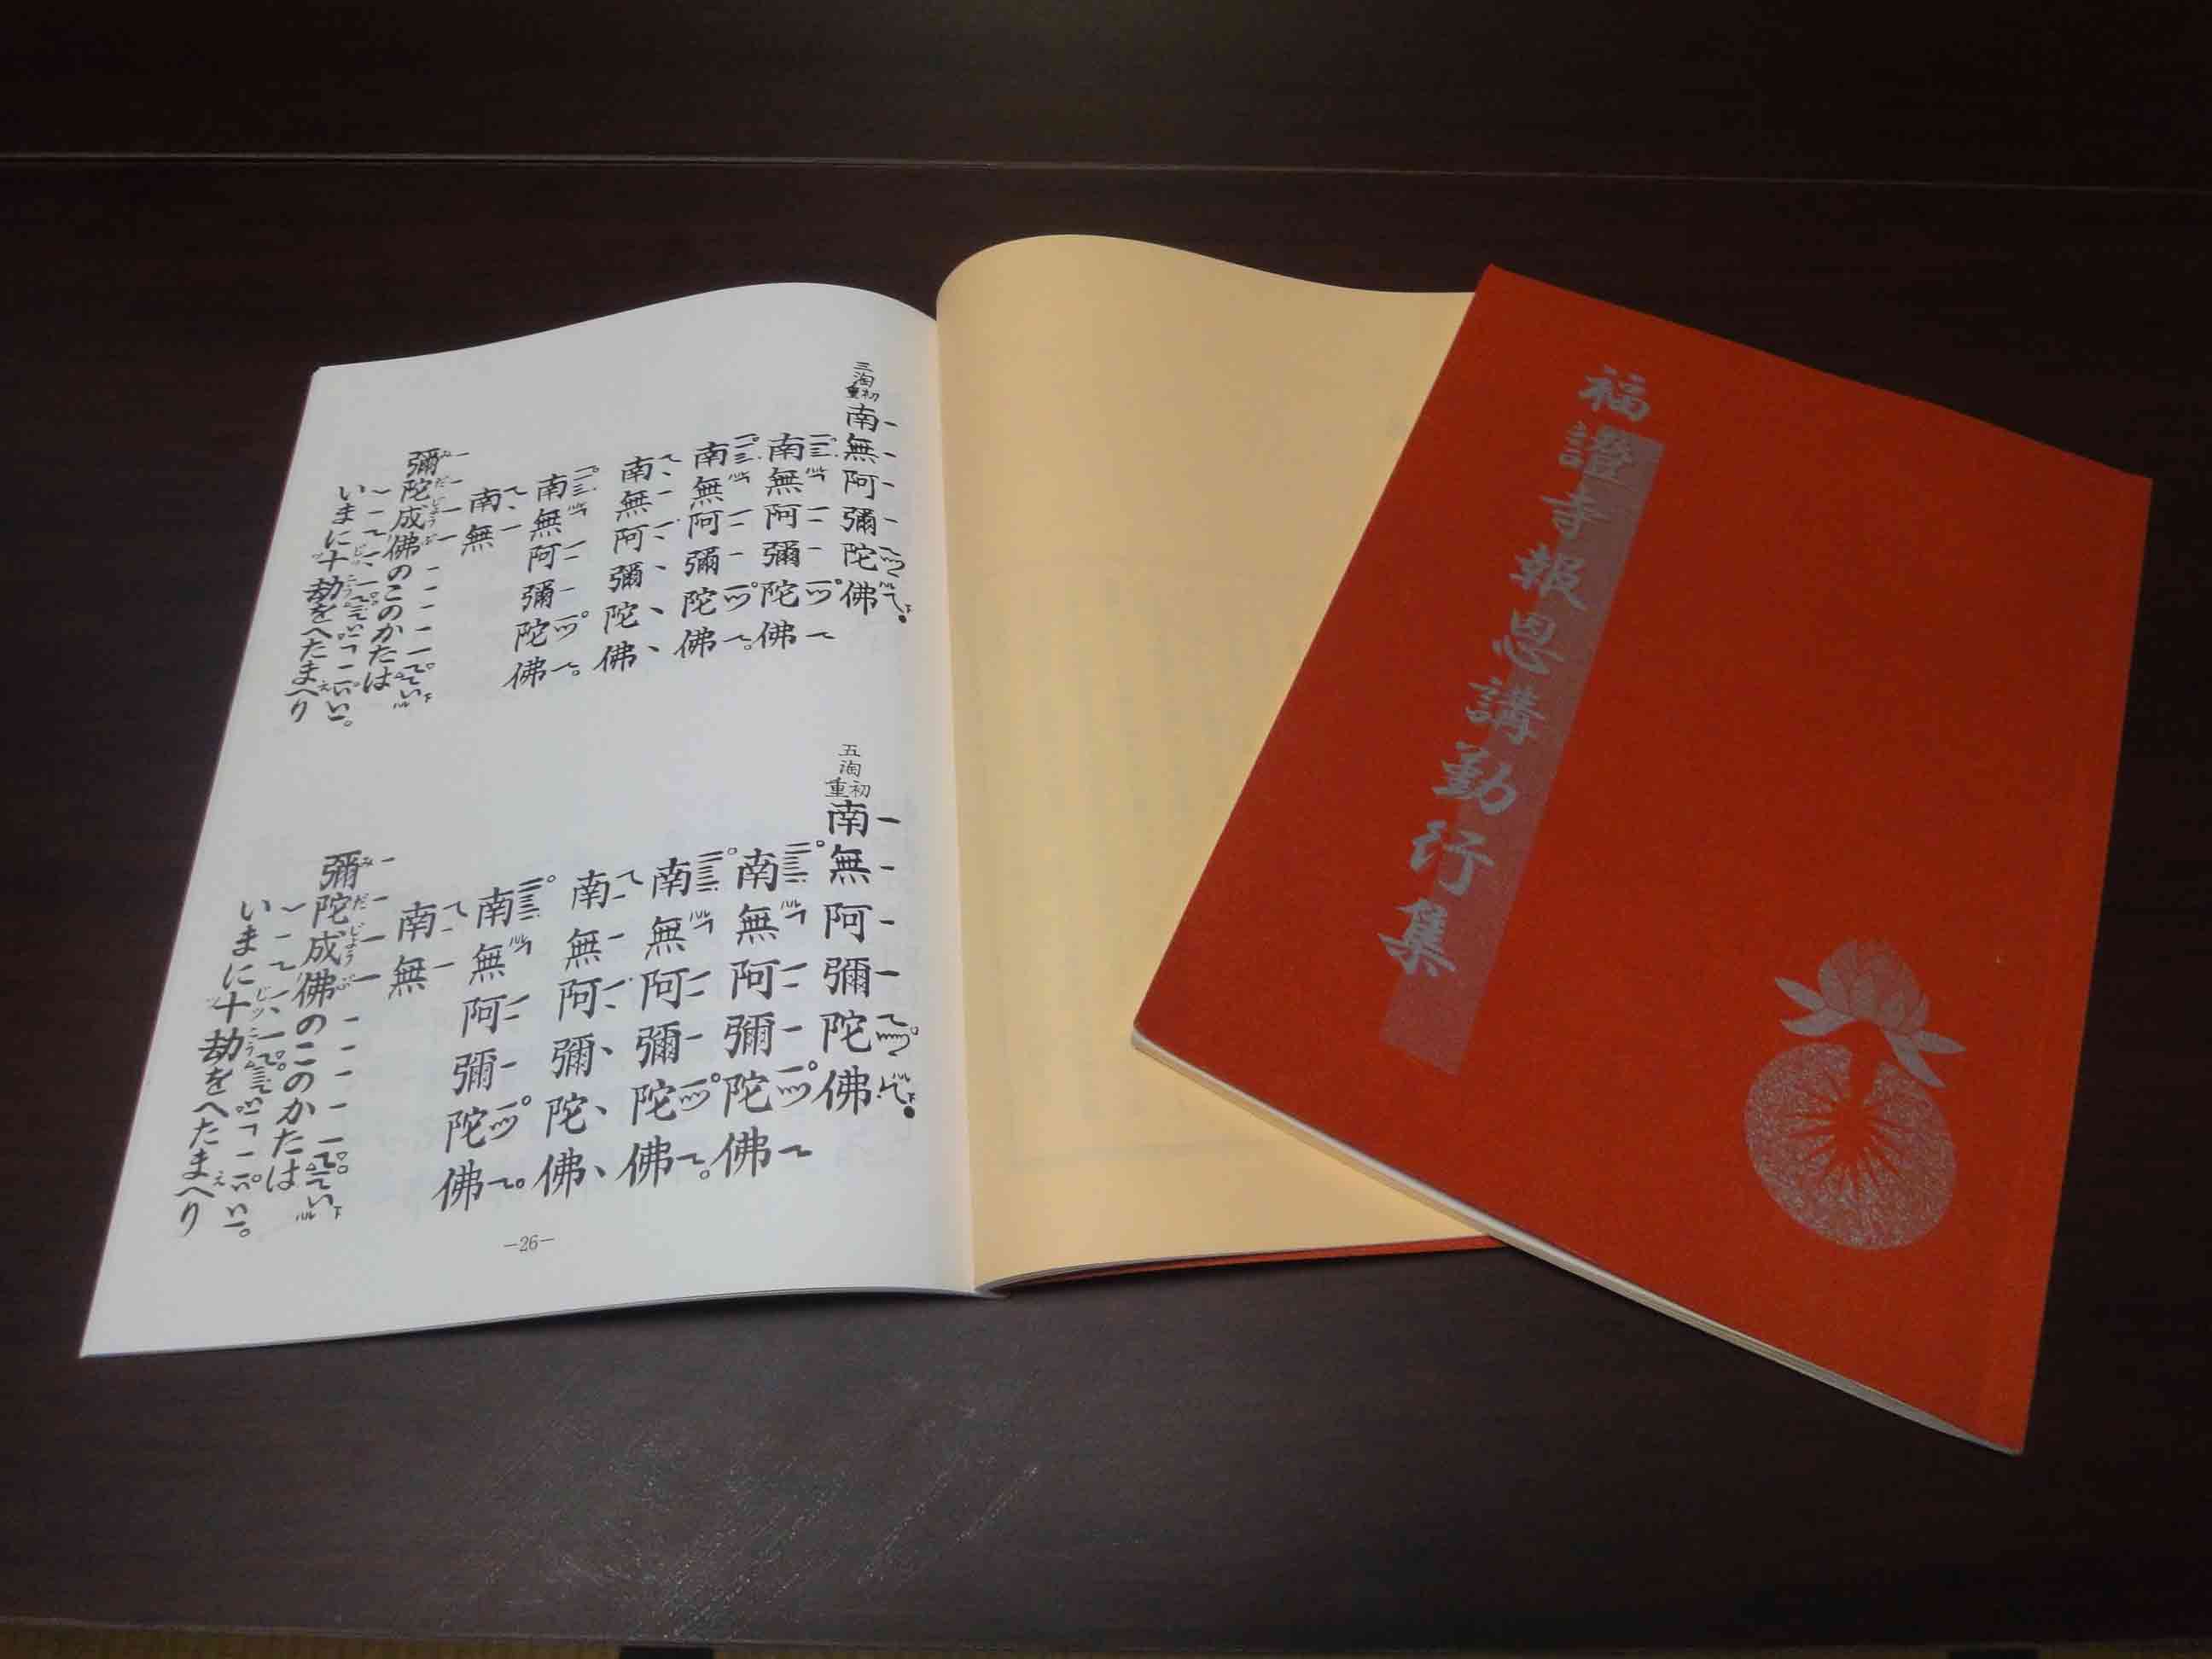 福證寺報恩講勤行集
三淘
初重
南無阿彌陀佛
南無阿彌陀佛
南無阿彌陀佛
南無阿彌陀佛
南無阿彌陀佛
南無
彌陀成佛のこのかたは
いまに十劫をへたまへり
五淘
初重
南無阿彌陀佛
南無阿彌陀佛
南無阿彌陀佛
南無阿彌陀佛
南無阿彌陀佛
南無
彌陀成佛のこのかたは
いまに十劫をへたまへり
—26—